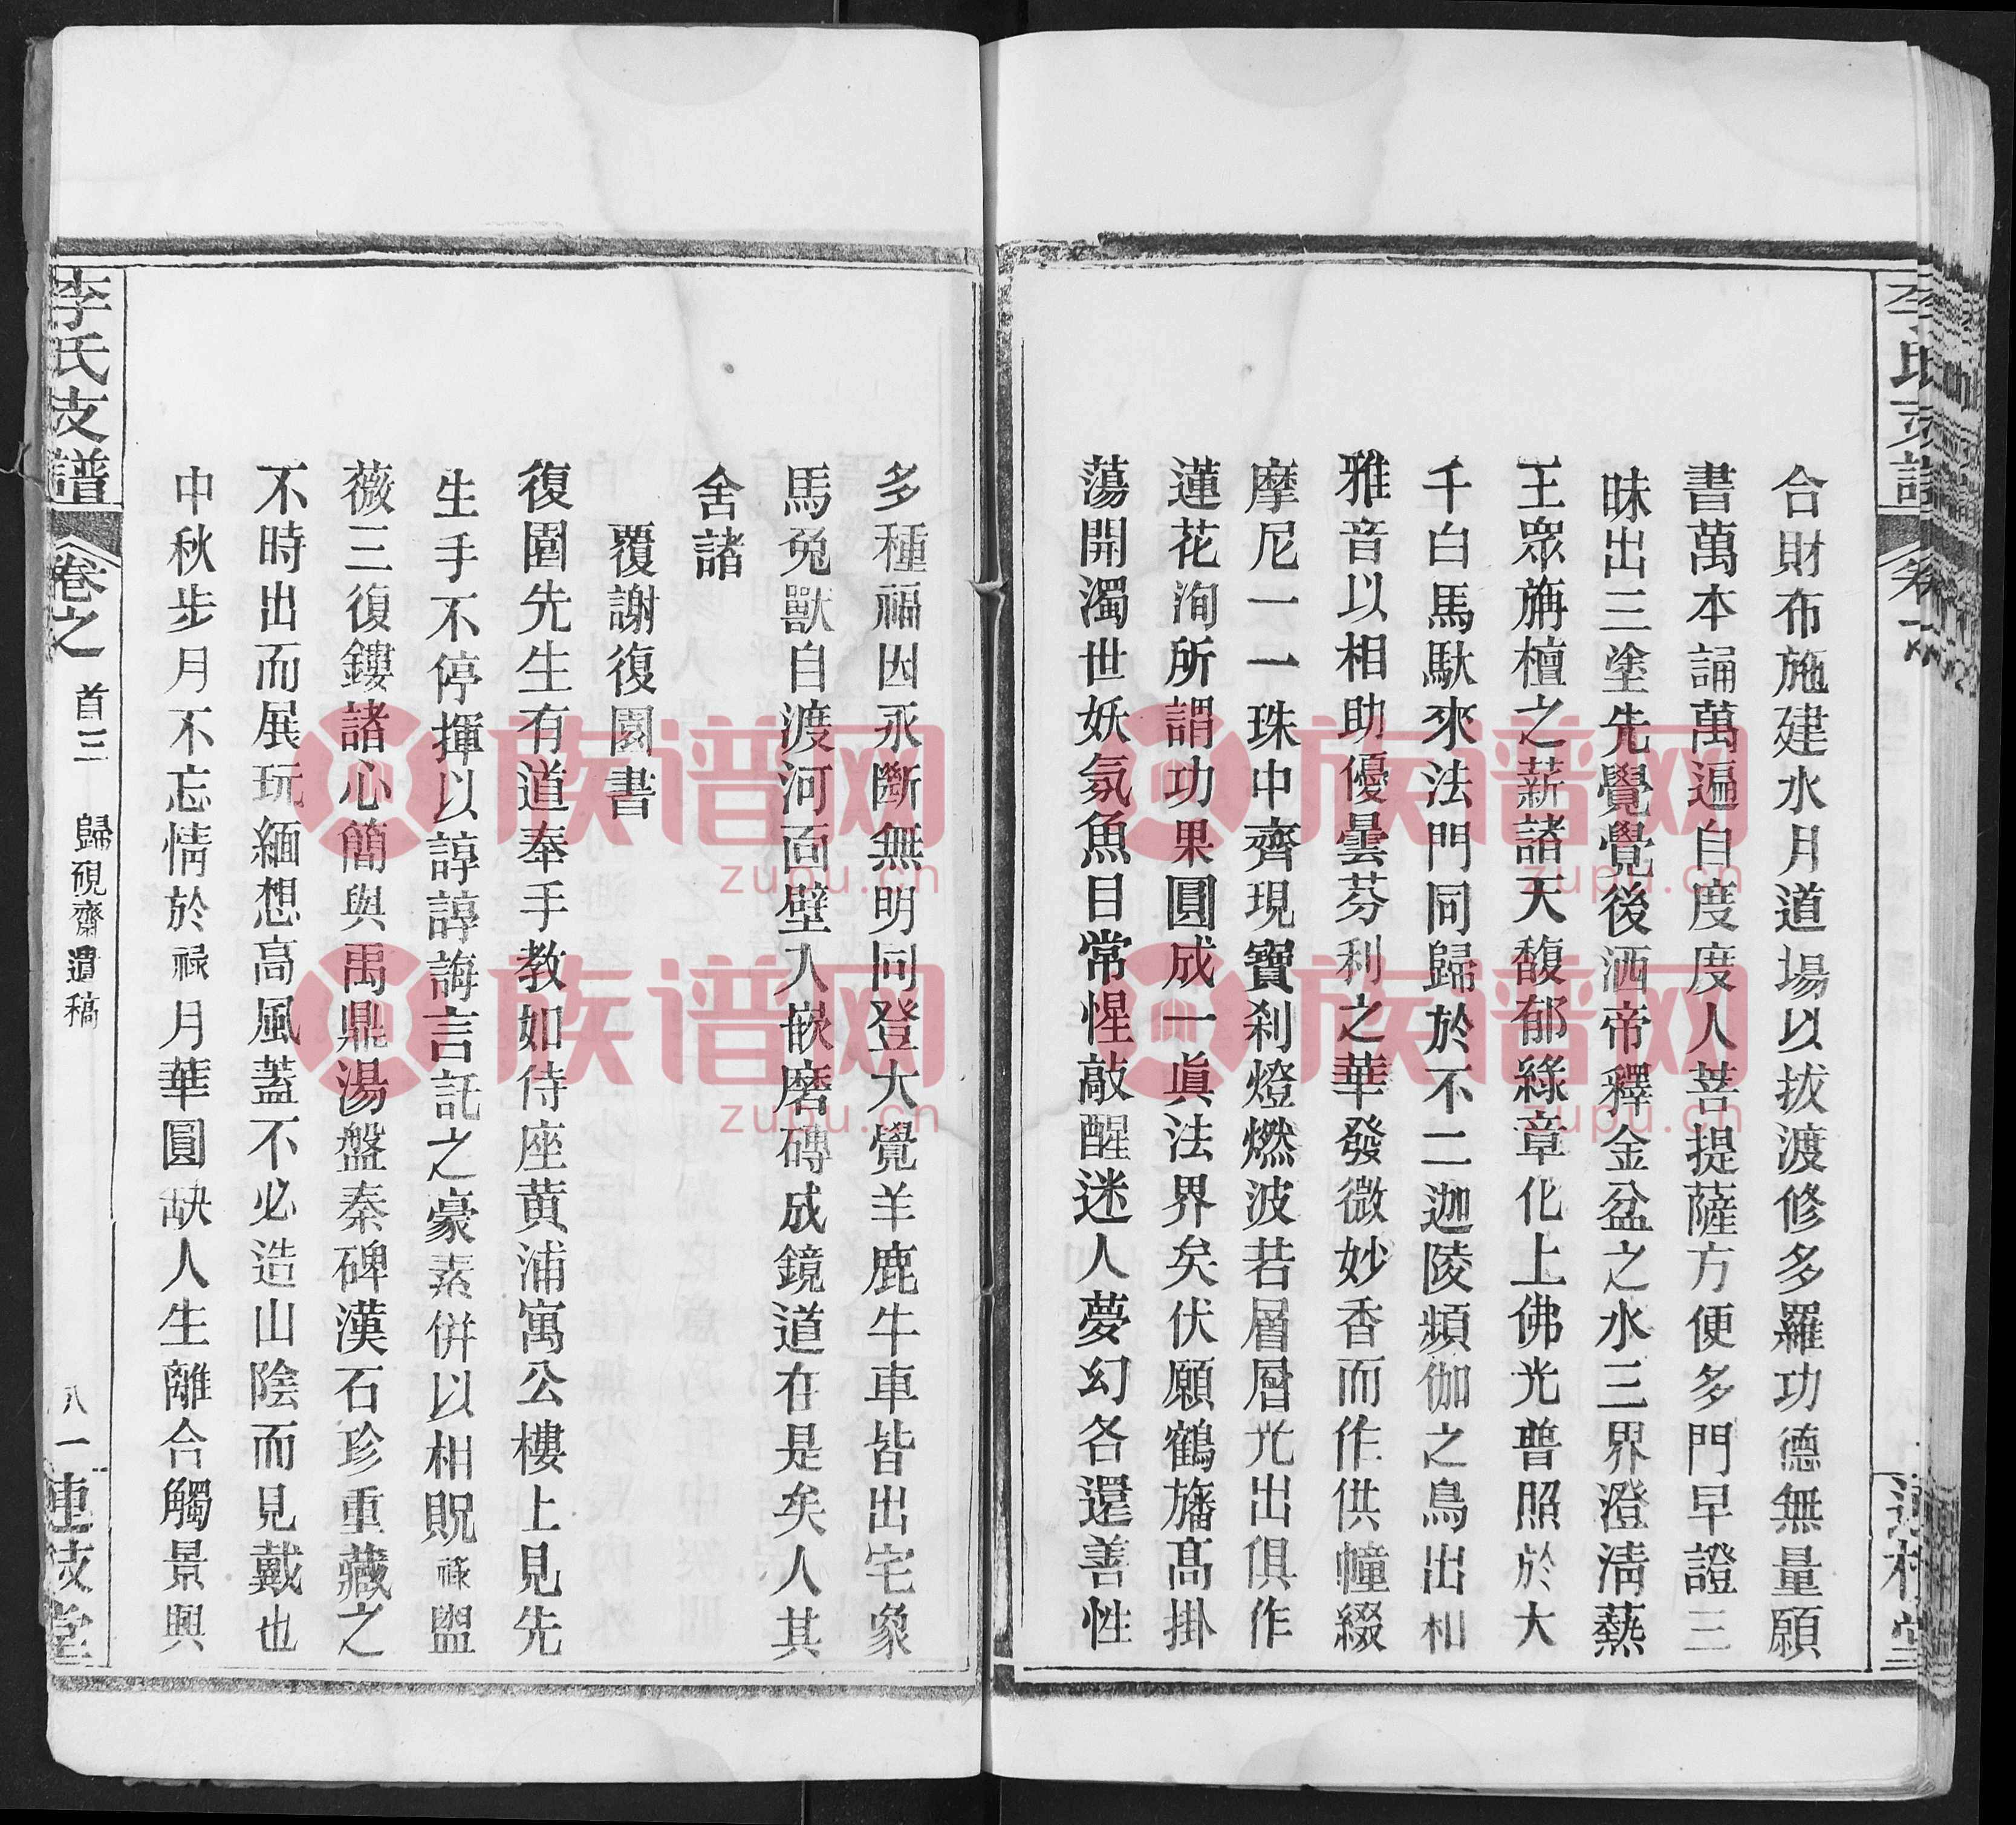 合財布施建水月道場以拔渡修多羅功德無量願
書萬本誦萬遍自度度人菩提薩方便多門早證三
昧出三塗先覺覺後洒帝釋金盆之水三界澄清爇
王眾旃檀之薪諸天馥郁綠章化上佛光普照於大
千白馬馱來法門同歸於不二迦陵頻伽之鳥出和
雅音以相助優曇芬利之華發微妙香而作供幢綴
摩尼一一珠中齊現寶刹燈燃波若層層光出俱作
蓮花洵所謂功果圓成一眞法界矣伏願鶴旛高掛
蕩開濁世妖氛魚目常惺敲醒迷人夢幻各還善性
多種福因永斷無明同登大覺羊鹿牛車皆出宅象
馬兔獸自渡河面壁入嵌磨磚成鏡道在是矣人其
舍諸
覆謝復園書
復園先生有道奉手教如侍座黃浦寓公樓上見先
生手不停揮以諄諄誨言託之豪素併以相貺祿盥
薇三復鏤諸心簡與禹鼎湯盤秦碑漢石珍重藏之
不時出而展玩緬想高風蓋不必造山陰而見戴也
中秋步月不忘情於祿月華圓缺人生離合觸景興
李氏支譜
卷之
首三
歸硯齋遺稿
八一
連枝堂
族谱网
zupu.cn
族谱网
zupu.cn
族谱网
zupu.cn
族谱网
zupu.cn